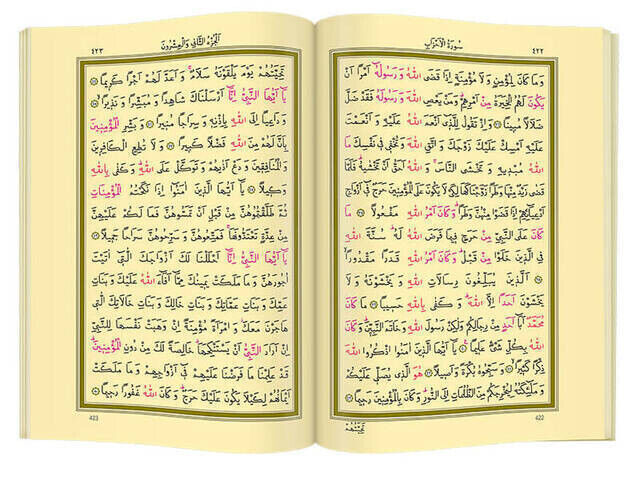 سُورَةُ الْاَحْزَابِ
٤٢٢
وَمَا كَانَ لِمُؤْمِنٍ وَلَا مُؤْمِنَةٍ اِذَا قَضَى اللّٰهُ وَرَسُولُهُٓ اَمْرًا اَنْ
يَكُونَ لَهُمُ الْخِيَرَةُ مِنْ اَمْرِهِمْ وَمَنْ يَعْصِ اللّٰهَ وَرَسُولَهُ فَقَدْ ضَلَّ
ضَلَالًا مُبِينًا وَاِذْ تَقُولُ لِلَّذِٓي اَنْعَمَ اللّٰهُ عَلَيْهِ وَاَنْعَمْتَ
عَلَيْهِ اَمْسِكْ عَلَيْكَ زَوْجَكَ وَاتَّقِ اللّٰهَ وَتُخْفِي فِي نَفْسِكَ مَا
اللّٰهُ مُبْدِيهِ وَتَخْشَى النَّاسَ وَاللّٰهُ اَحَقُّ اَنْ تَخْشٰيهُ فَلَمَّا
قَضٰى زَيْدٌ مِنْهَا وَطَرًا زَوَّجْنَاكَهَا لِكَيْ لَا يَكُونَ عَلَى الْمُؤْمِنِينَ حَرَجٌ فِٓي اَزْوَاجِ
اَدْعِيَٓائِهِمْ اِذَا قَضَوْا مِنْهُنَّ وَطَرًا وَكَانَ اَمْرُ اللّٰهِ مَفْعُولًا مَا
كَانَ عَلَى النَّبِيِّ مِنْ حَرَجٍ فِيمَا فَرَضَ اللّٰهُ لَهُ سُنَّةَ اللّٰهِ
فِي الَّذِينَ خَلَوْا مِنْ قَبْلُ وَكَانَ اَمْرُ اللّٰهِ قَدَرًا مَقْدُورًا
اَلَّذِينَ يُبَلِّغُونَ رِسَالَاتِ اللّٰهِ وَيَخْشَوْنَهُ وَلَا
يَخْشَوْنَ اَحَدًا اِلَّا اللّٰهَ وَكَفٰى بِاللّٰهِ حَسِيبًا مَا كَانَ
مُحَمَّدٌ اَبَٓا اَحَدٍ مِنْ رِجَالِكُمْ وَلٰكِنْ رَسُولَ اللّٰهِ وَخَاتَمَ النَّبِيِّينَ وَكَانَ
اللّٰهُ بِكُلِّ شَيْءٍ عَلِيمًا يَٓا اَيُّهَا الَّذِينَ اٰمَنُوا اذْكُرُوا اللّٰهَ
ذِكْرًا كَثِيرًا وَسَبِّحُوهُ بُكْرَةً وَاَصِيلًا هُوَ الَّذِي يُصَلِّي عَلَيْكُمْ
وَمَلٰٓئِكَتُهُ لِيُخْرِجَكُمْ مِنَ الظُّلُمَاتِ اِلَى النُّورِ وَكَانَ بِالْمُؤْمِنِينَ رَحِيمًا
422
تَحِيَّتُهُمْ
اَلْجُزْءُ الثَّانِي وَالْعِشْرُونَ
٤٢٣
تَحِيَّتُهُمْ يَوْمَ يَلْقَوْنَهُ سَلَامٌ وَاَعَدَّ لَهُمْ اَجْرًا كَرِيمًا
يَٓا اَيُّهَا النَّبِيُّ اِنَّٓا اَرْسَلْنَاكَ شَاهِدًا وَمُبَشِّرًا وَنَذِيرًا
وَدَاعِيًا اِلَى اللّٰهِ بِاِذْنِهِ وَسِرَاجًا مُنِيرًا وَبَشِّرِ الْمُؤْمِنِينَ
بِاَنَّ لَهُمْ مِنَ اللّٰهِ فَضْلًا كَبِيرًا وَلَا تُطِعِ الْكَافِرِينَ
وَالْمُنَافِقِينَ وَدَعْ اَذٰيهُمْ وَتَوَكَّلْ عَلَى اللّٰهِ وَكَفٰى بِاللّٰهِ
وَكِيلًا يَٓا اَيُّهَا الَّذِينَ اٰمَنُٓوا اِذَا نَكَحْتُمُ الْمُؤْمِنَاتِ
ثُمَّ طَلَّقْتُمُوهُنَّ مِنْ قَبْلِ اَنْ تَمَسُّوهُنَّ فَمَا لَكُمْ عَلَيْهِنَّ
مِنْ عِدَّةٍ تَعْتَدُّونَهَا فَمَتِّعُوهُنَّ وَسَرِّحُوهُنَّ سَرَاحًا جَمِيلًا
يَٓا اَيُّهَا النَّبِيُّ اِنَّٓا اَحْلَلْنَا لَكَ اَزْوَاجَكَ الّٰتِٓي اٰتَيْتَ
اُجُورَهُنَّ وَمَا مَلَكَتْ يَمِينُكَ مِمَّٓا اَفَٓاءَ اللّٰهُ عَلَيْكَ وَبَنَاتِ
عَمِّكَ وَبَنَاتِ عَمَّاتِكَ وَبَنَاتِ خَالِكَ وَبَنَاتِ خَالَاتِكَ الّٰتِي
هَاجَرْنَ مَعَكَ وَامْرَاَةً مُؤْمِنَةً اِنْ وَهَبَتْ نَفْسَهَا لِلنَّبِيِّ
اِنْ اَرَادَ النَّبِيُّ اَنْ يَسْتَنْكِحَهَا خَالِصَةً لَكَ مِنْ دُونِ الْمُؤْمِنِينَ
قَدْ عَلِمْنَا مَا فَرَضْنَا عَلَيْهِمْ فِٓي اَزْوَاجِهِمْ وَمَا مَلَكَتْ
اَيْمَانُهُمْ لِكَيْلَا يَكُونَ عَلَيْكَ حَرَجٌ وَكَانَ اللّٰهُ غَفُورًا رَحِيمًا
423